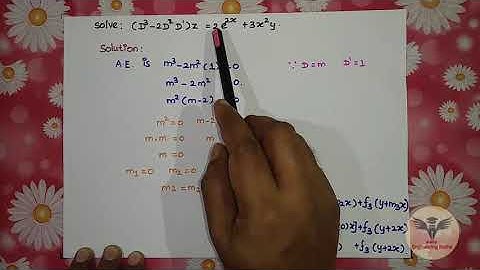 Solve: (D³-2D²D')z = 2e²ˣ + 3x²y.
Solution:
A.E. is m³-2m²(1) = 0 ∵ D=m D'=1
m³-2m² = 0.
m²(m-2) = 0
m²=0 m-2
m.m=0
m=0
m₁=0 m₂=0
m₁=m₂
2x)+f₃(y+m₃x)
0)x]+f₃(y+2x)
+f₃(y+2x)